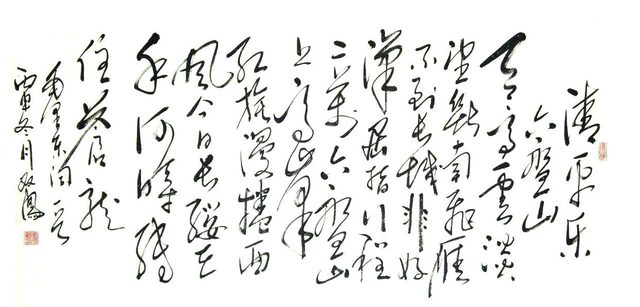 清平乐
六盘山
天高云淡
望断南飞雁
不到长城非好
汉屈指行程
二万六盘山
上高峰
红旗漫捲西
风今日长缨在
手何时缚
住苍龙
毛泽东词一首
冬月双凤